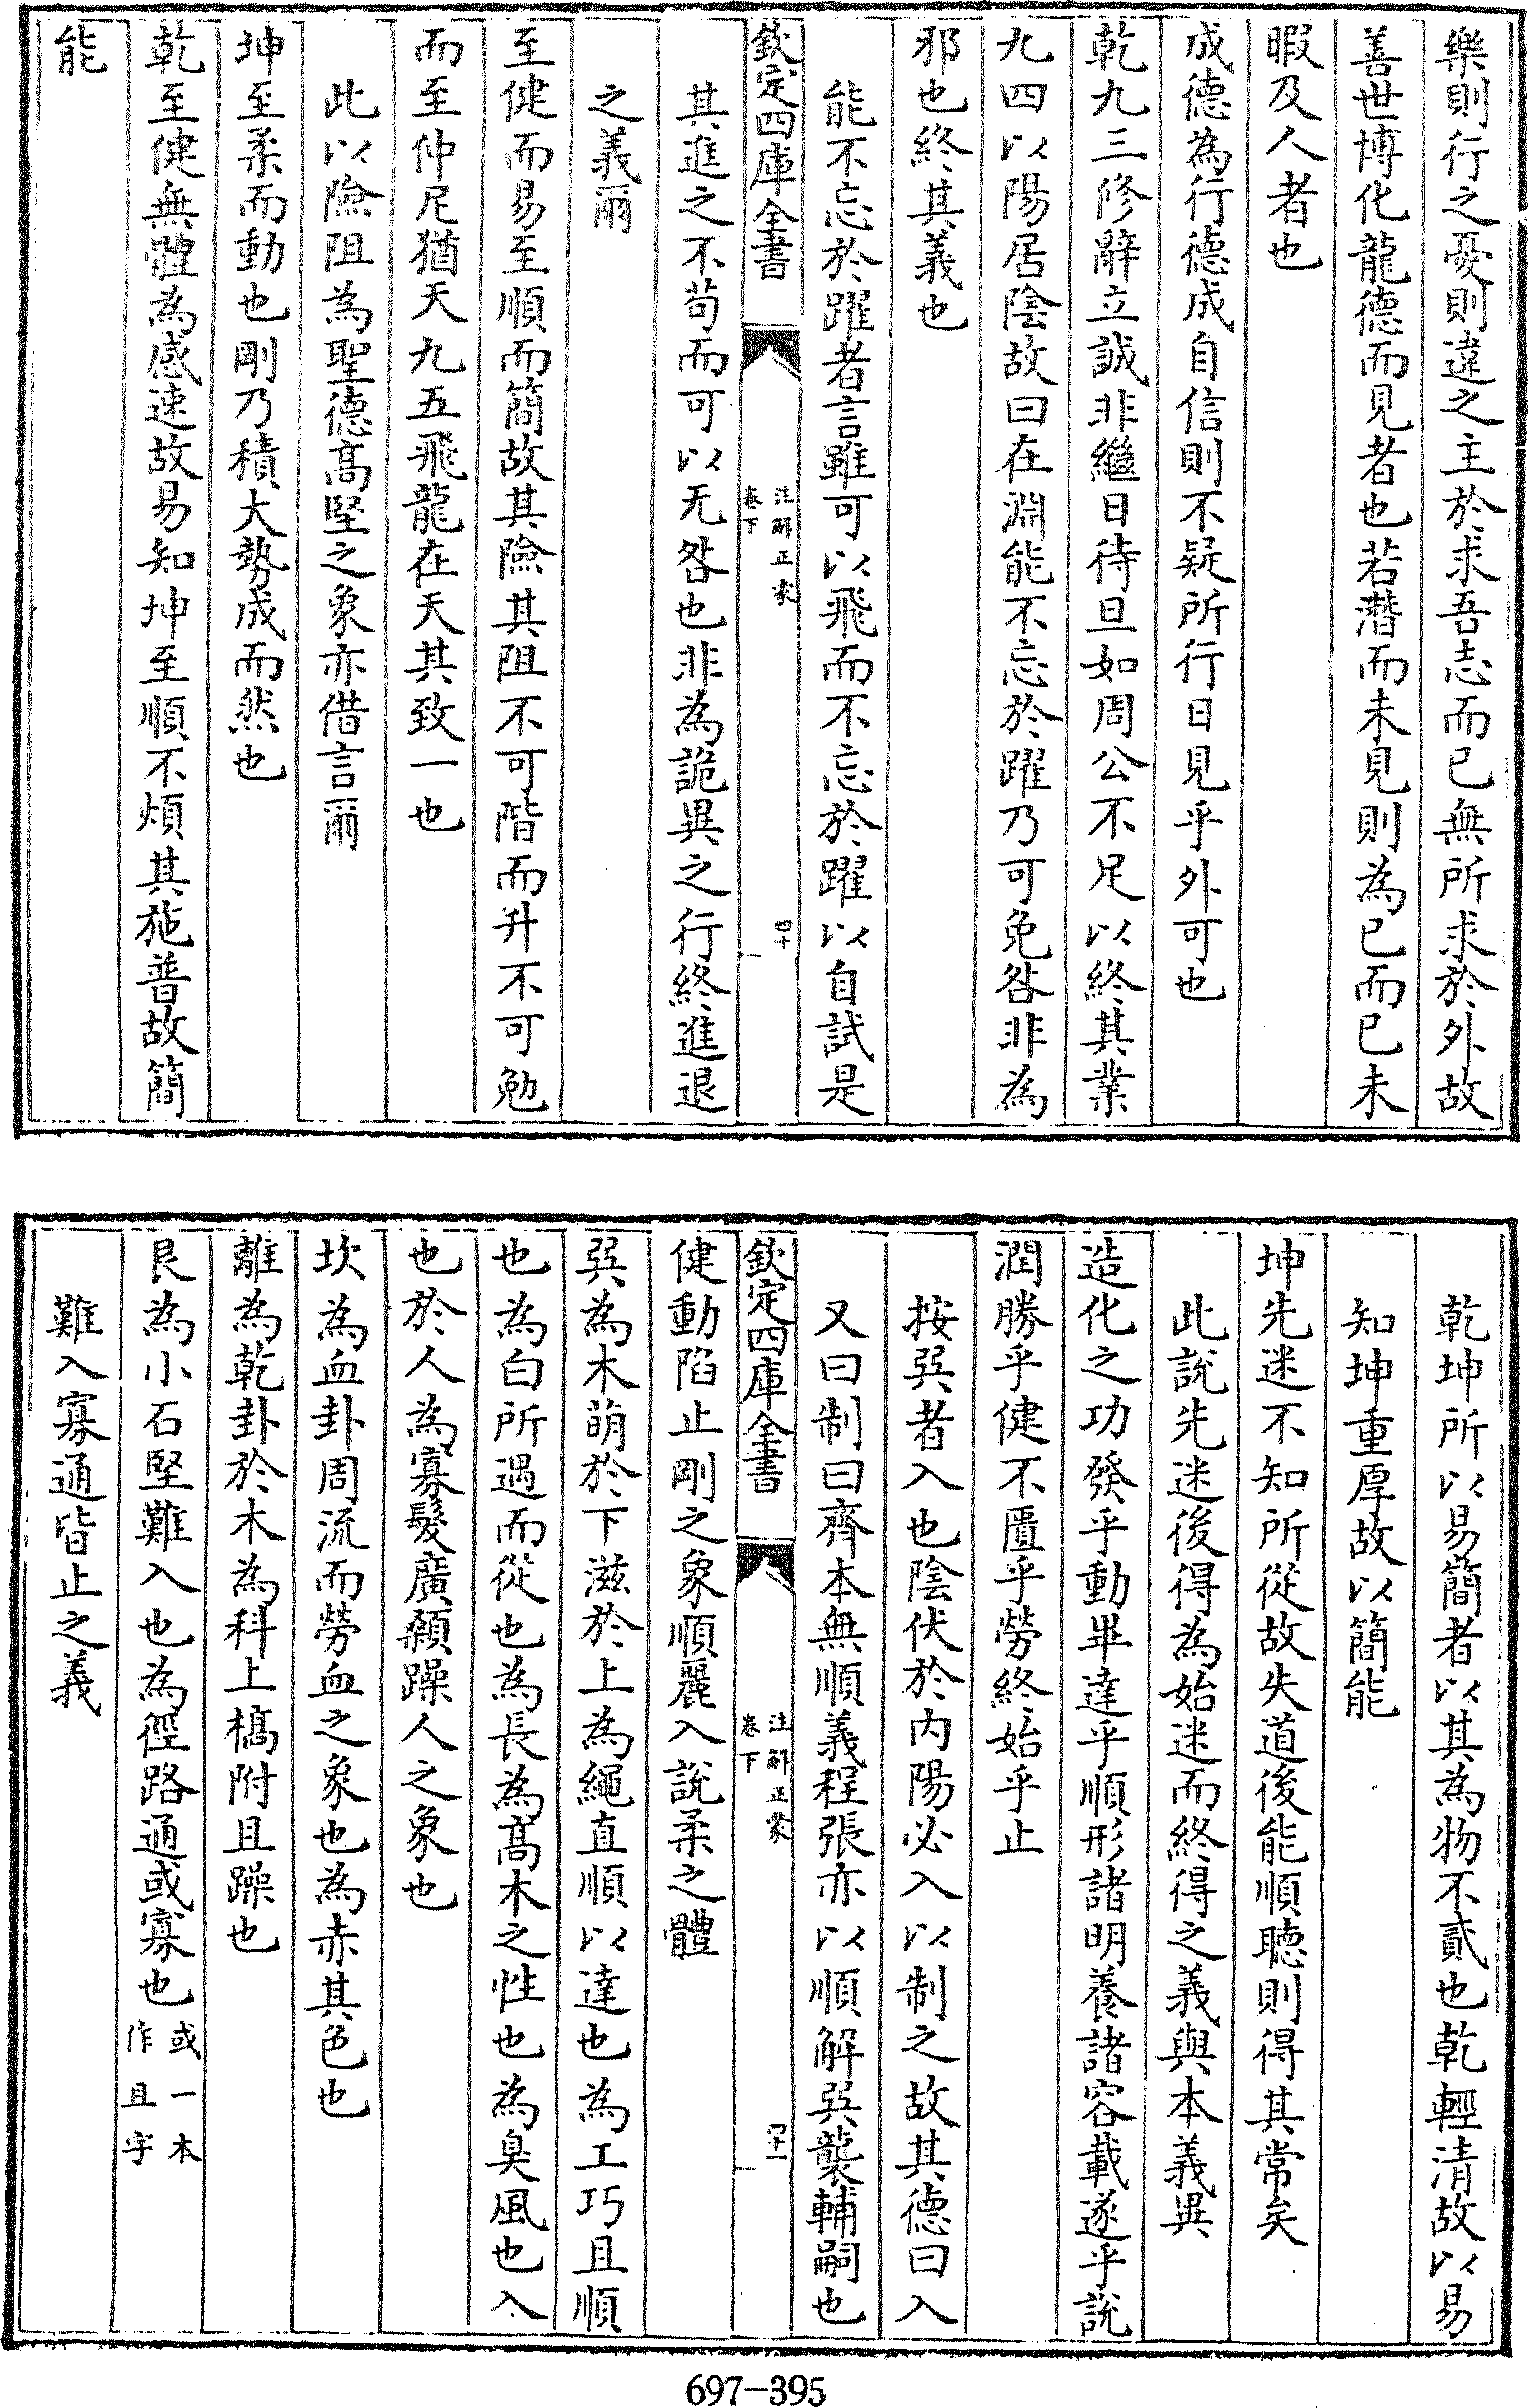 樂則行之憂則違之主於求吾志而已無所求於外故
善世博化龍德而見者也若潛而未見則為已而已未
暇及人者也
成德為行德成自信則不疑所行日見乎外可也
乾九三修辭立誠非繼日待旦如周公不足以終其業
九四以陽居陰故曰在淵能不忘於躍乃可免咎非為
邪也終其義也
能不忘於躍者言雖可以飛而不忘於躍以自試是
欽定四庫全書
注解正蒙
卷下
四十
其進之不苟而可以无咎也非為詭異之行終進退
之義爾
至健而易至順而簡故其險其阻不可階而升不可勉
而至仲尼猶天九五飛龍在天其致一也
此以險阻為聖德高堅之象亦借言爾
坤至柔而動也剛乃積大勢成而然也
乾至健無體為感速故易知坤至順不煩其施普故簡
能
乾坤所以易簡者以其為物不貳也乾輕清故以易
知坤重厚故以簡能
坤先迷不知所從故失道後能順聽則得其常矣
此說先迷後得為始迷而終得之義與本義異
造化之功發乎動畢達乎順形諸明養諸容載遂乎說
潤勝乎健不匱乎勞終始乎止
按巽者入也陰伏於內陽必入以制之故其德曰入
又曰制曰齊本無順義程張亦以順解巽襲輔嗣也
欽定四庫全書
注解正蒙
卷下
四十一
健動陷止剛之象順麗入說柔之體
巽為木萌於下滋於上為繩直順以達也為工巧且順
也為白所遇而從也為長為高木之性也為臭風也入
也於人為寡髮廣顙躁人之象也
坎為血卦周流而勞血之象也為赤其色也
離為乾卦於木為科上槁附且躁也
艮為小石堅難入也為徑路通或寡也或一本作且字
難入寡通皆止之義
697-395